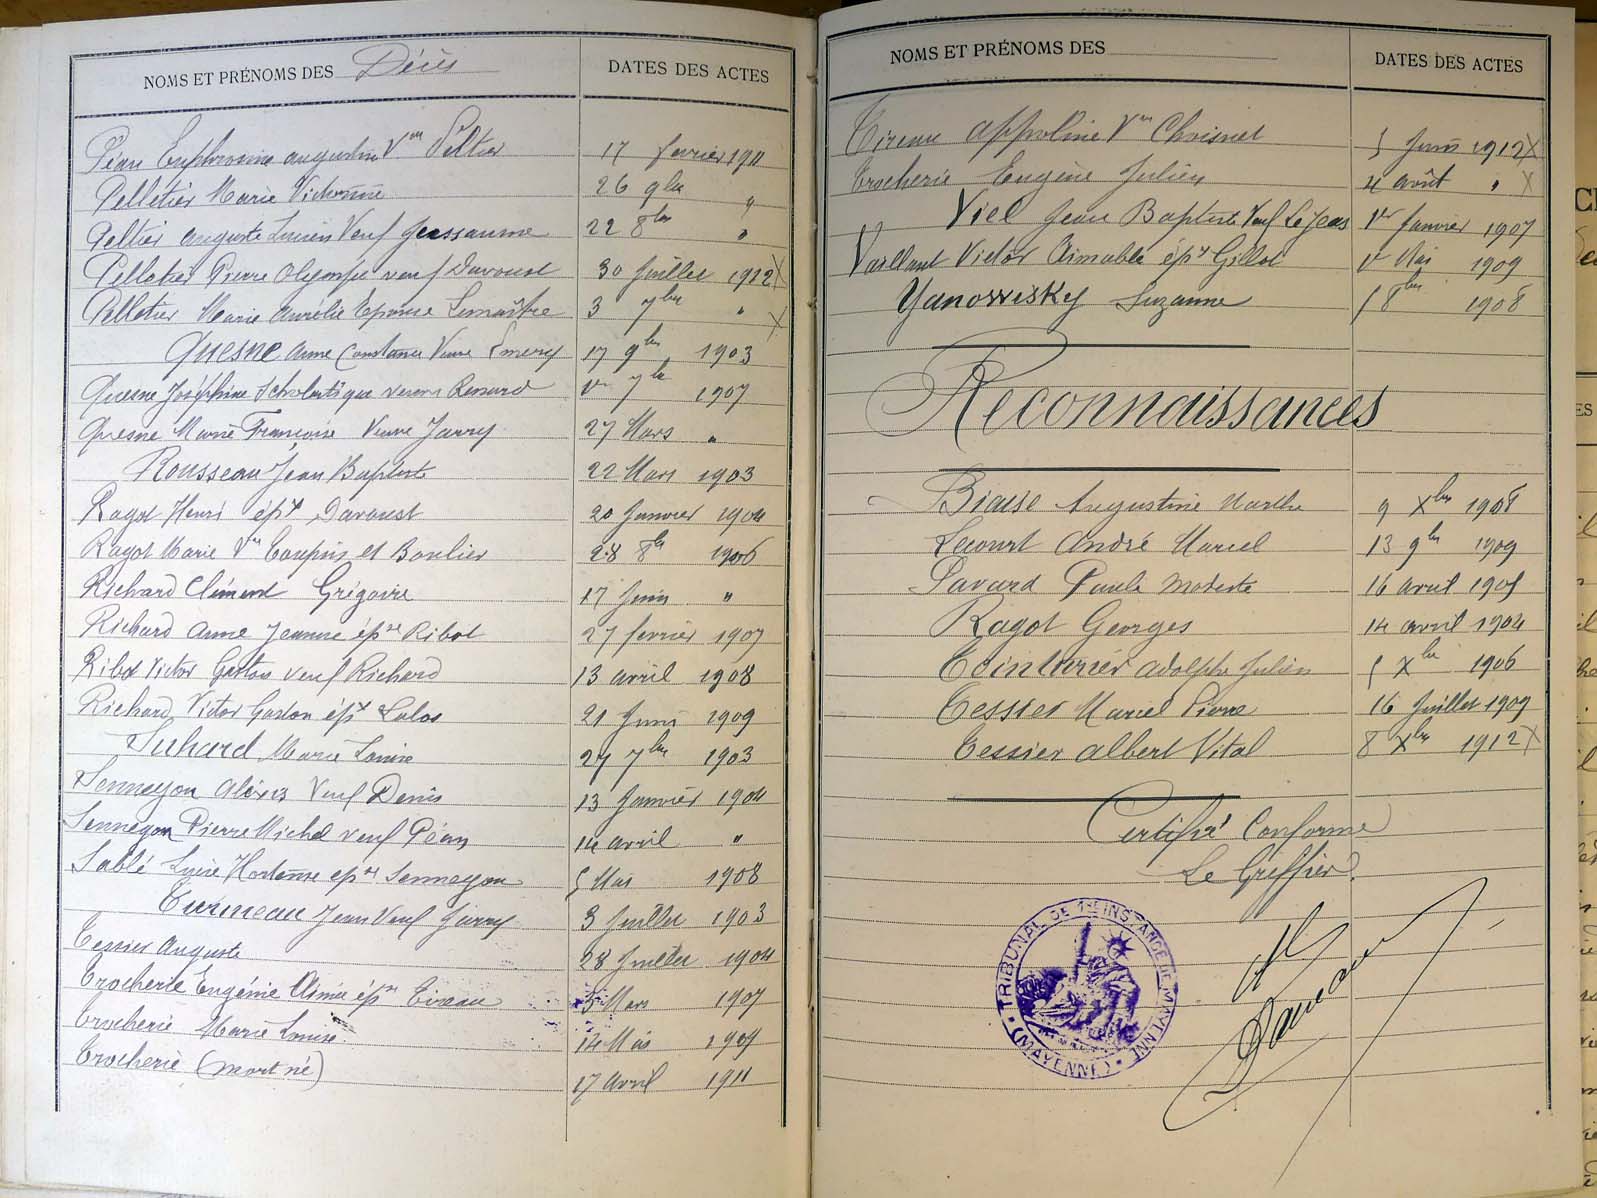 NOMS ET PRÉNOMS DES Décès DATES DES ACTES
Péan Euphrosine augustine Vve Peltier 17 fevrier 1911
Pelletier Marie Victorine 26 9bre "
Peltier auguste Lucien Veuf Geussaume 22 8bre "
Pelletier Pierre Olympe veuf Davoust 30 Juillet 1912 X
Pelletier Marie Aurélie Epouse Lemaître 3 7bre " X
Quesne Anne Constance Veuve Emery 17 9bre 1903
Quesne Joséphine Scholastique veuve Renard 1er 7bre 1907
Quesne Marie Françoise Veuve Jarry 27 Mars "
Rousseau Jean Baptiste 22 Mars 1903
Ragot Henri épx Davoust 20 Janvier 1904
Ragot Marie Vve Coupris et Boulier 28 8bre 1906
Richard Clément Grégoire 17 Juin "
Richard Anne Jeanne épse Ribot 27 fevrier 1907
Ribot Victor Gaston veuf Richard 13 avril 1908
Richard Victor Gaston épx Lalos 21 Juin 1909
Suhard Marie Louise 27 7bre 1903
Senneyon Alexis Veuf Denis 13 Janvier 1904
Senneyon Pierre Michel veuf Péan 14 avril "
Sablé Luise Hortense épse Senneyon 5 Mai 1908
Turmeau Jean Veuf Jarry 3 Juillet 1903
Tessier Auguste 28 Juillet 1904
Trocherie Eugénie Aimée épse Tireau 5 Mars 1907
Trocherie Marie Louise 14 Mai 1909
Trocherie (mort né) 17 Avril 1911
NOMS ET PRÉNOMS DES DATES DES ACTES
Tireau Appoline Vve Choisnet 5 Juin 1912 X
Trocherie Eugène Julien 4 août " X
Viel Jean Baptiste Veuf Lejeas 1er Janvier 1907
Vaillant Victor Aimable épx Gillot 1er Mai 1909
Yanowisky Suzanne 5 8bre 1908
Reconnaissances
Biaise Augustine Marthe 9 Xbre 1908
Lecourt André Marcel 13 9bre 1909
Pavard Paule Modeste 16 avril 1905
Ragot Georges 14 avril 1904
Teinturier Adolphe Julien 5 Xbre 1906
Tessier Marcel Pierre 16 Juillet 1909
Tessier Albert Vital 8 Xbre 1912 X
Certifié Conforme
Le Greffier.
TRIBUNAL DE 1re INSTANCE DE MAYENNE (MAYENNE)